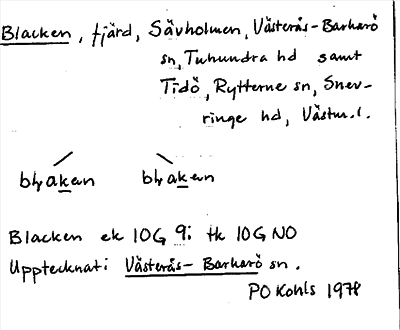 Blacken, fjärd, Sävholmen, Västerås-Barkarö
sn, Tuhundra hd samt
Tidö, Rytterne sn, Snev-
ringe hd, Västm.l.
Blacken ek 10G 9i tk 10G NO
Upptecknat i Västerås-Barkarö sn.
PO Kohls 1978